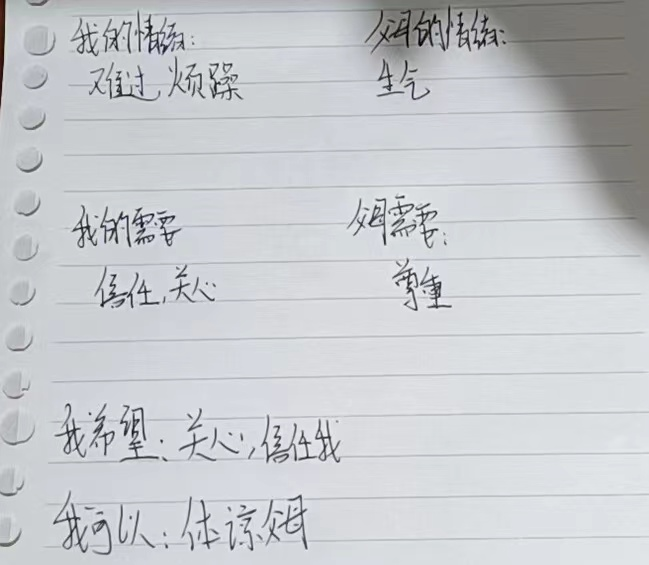 我的情绪: 父母的情绪:
难过,烦躁 生气
我的需要 父母需要:
信任,关心 尊重
我希望:关心,信任我
我可以:体谅父母